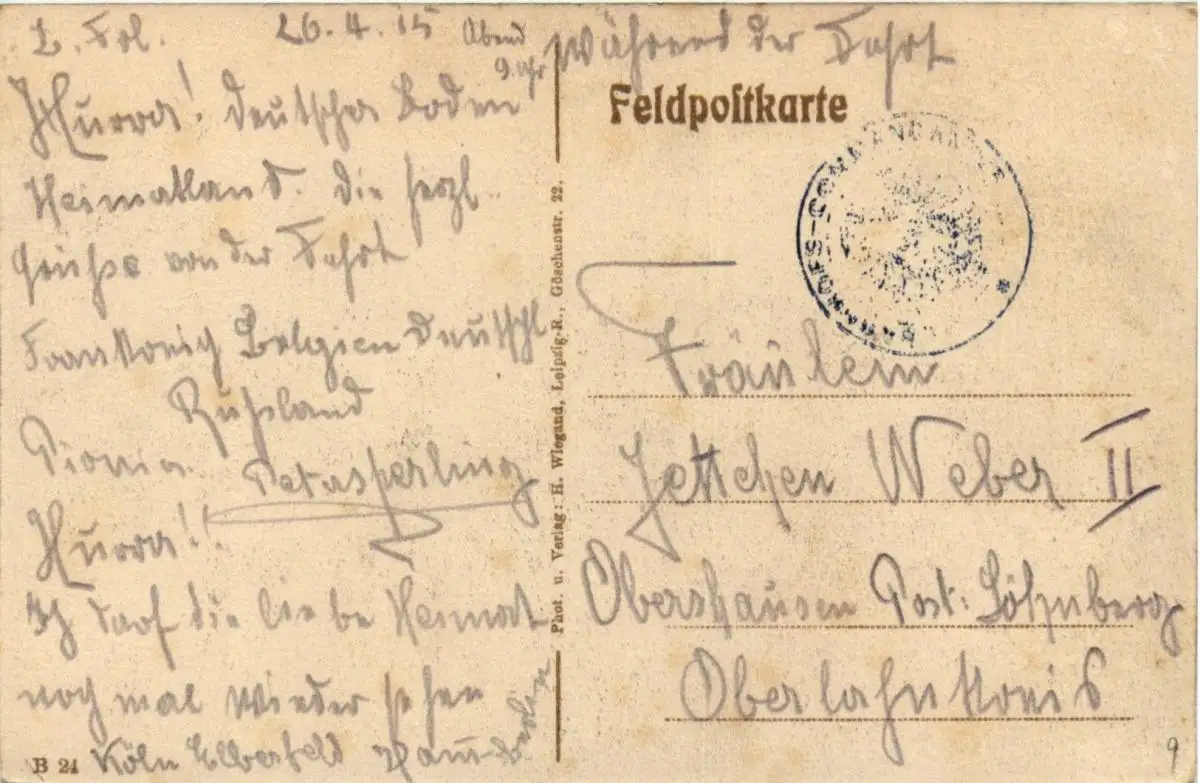 L. Frl. 26.4.15 Abend 9 Uhr Während der Fahrt
Hurra! deutscher Boden
Heimatland. die herzl.
Grüße von der Fahrt
Frankreich Belgien Deutschl.
Rußland
Pionier Peter Sperling
Hurra!!
Ich darf die liebe Heimat
noch mal wieder sehen
Köln Elberfeld Berlin
B 21
Phot. u. Verlag: H. Wiegand, Leipzig-R., Göschenstr. 22.
Feldpostkarte
BAHNHOFS-COMMANDANTUR
Fräulein
Jettchen Weber II
Obershausen Post: Löhnberg
Oberlahnkreis
9